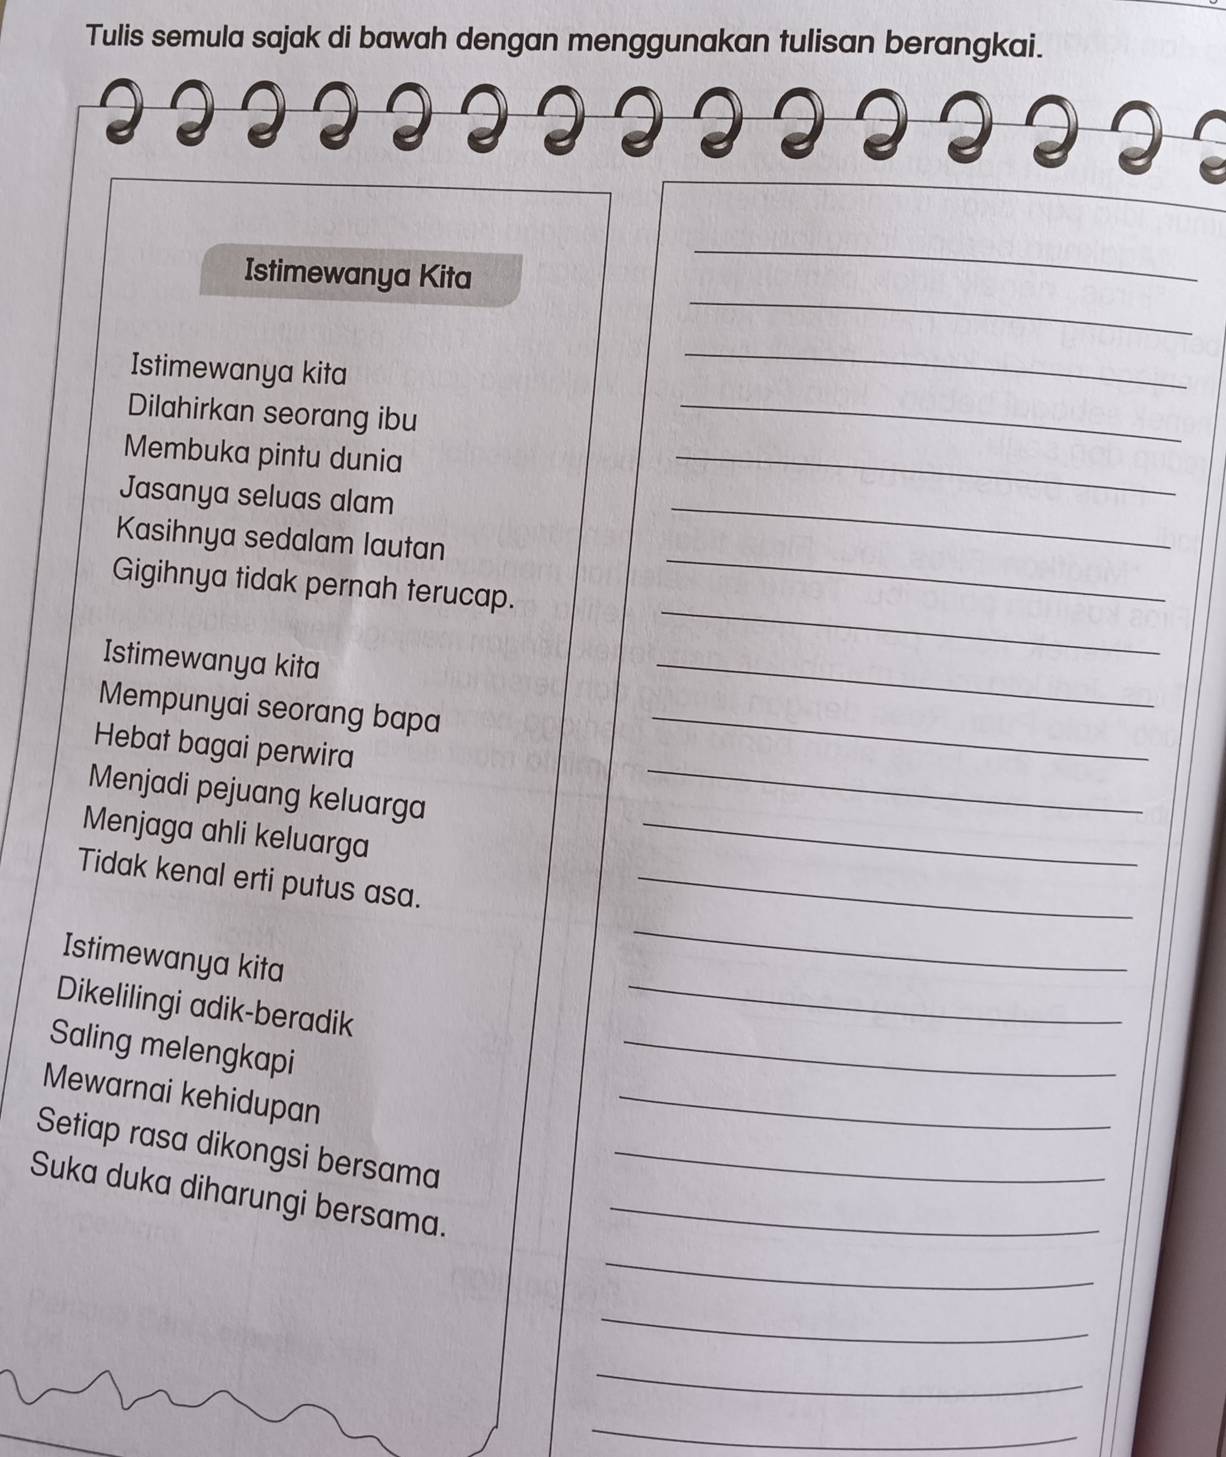 Tulis semula sajak di bawah dengan menggunakan tulisan berangkai.
Istimewanya Kita
Istimewanya kita
Dilahirkan seorang ibu
Membuka pintu dunia
Jasanya seluas alam
Kasihnya sedalam lautan
Gigihnya tidak pernah terucap.
Istimewanya kita
Mempunyai seorang bapa
Hebat bagai perwira
Menjadi pejuang keluarga
Menjaga ahli keluarga
Tidak kenal erti putus asa.
Istimewanya kita
Dikelilingi adik-beradik
Saling melengkapi
Mewarnai kehidupan
Setiap rasa dikongsi bersama
Suka duka diharungi bersama.